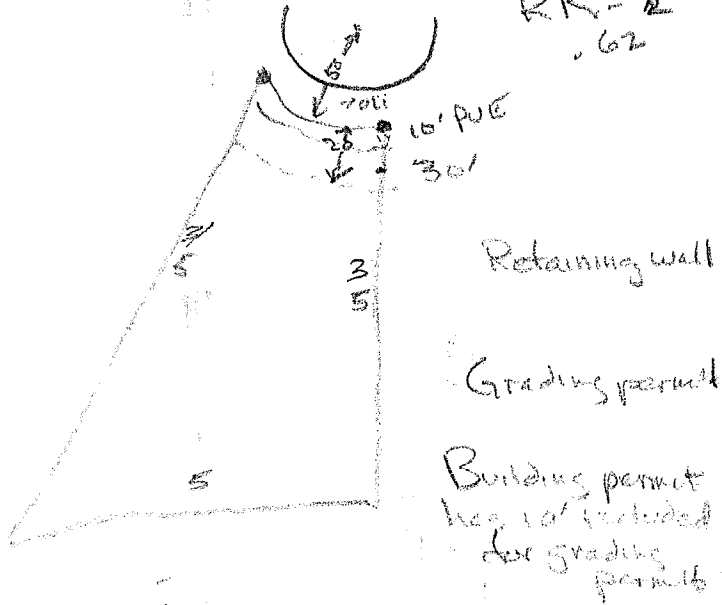 .62
50
10' PUE
30'
3
5
3
5
Retaining wall
Grading permit
5
Building permit
has 10' included
for grading
permits